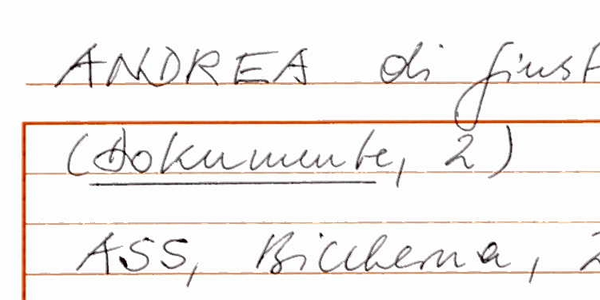 ANDREA di giust
(Dokumente, 2)
ASS, Biccherna, 2